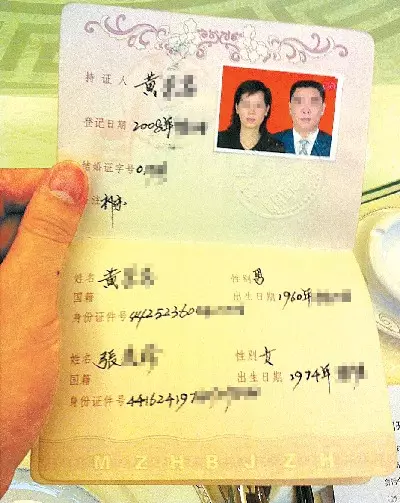 持证人 黄
登记日期 2008年
结婚证字号 0
姓名 黄 性别 男
国籍 出生日期 1960年
身份证件号 44252360
姓名 張 性别 女
国籍 出生日期 1974年
身份证件号 441624197
M Z H B J Z H